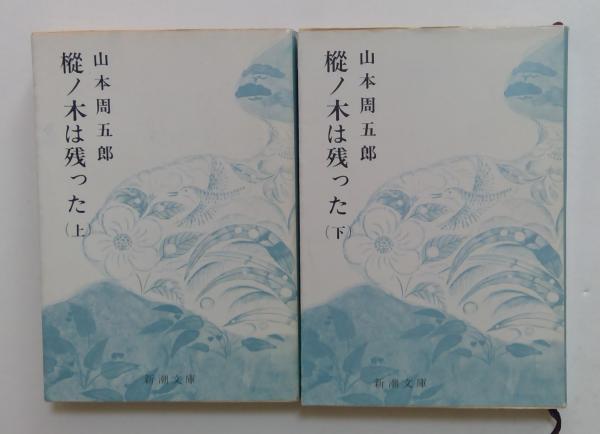 山本周五郎
樅ノ木は残った(上)
新潮文庫
山本周五郎
樅ノ木は残った(下)
新潮文庫